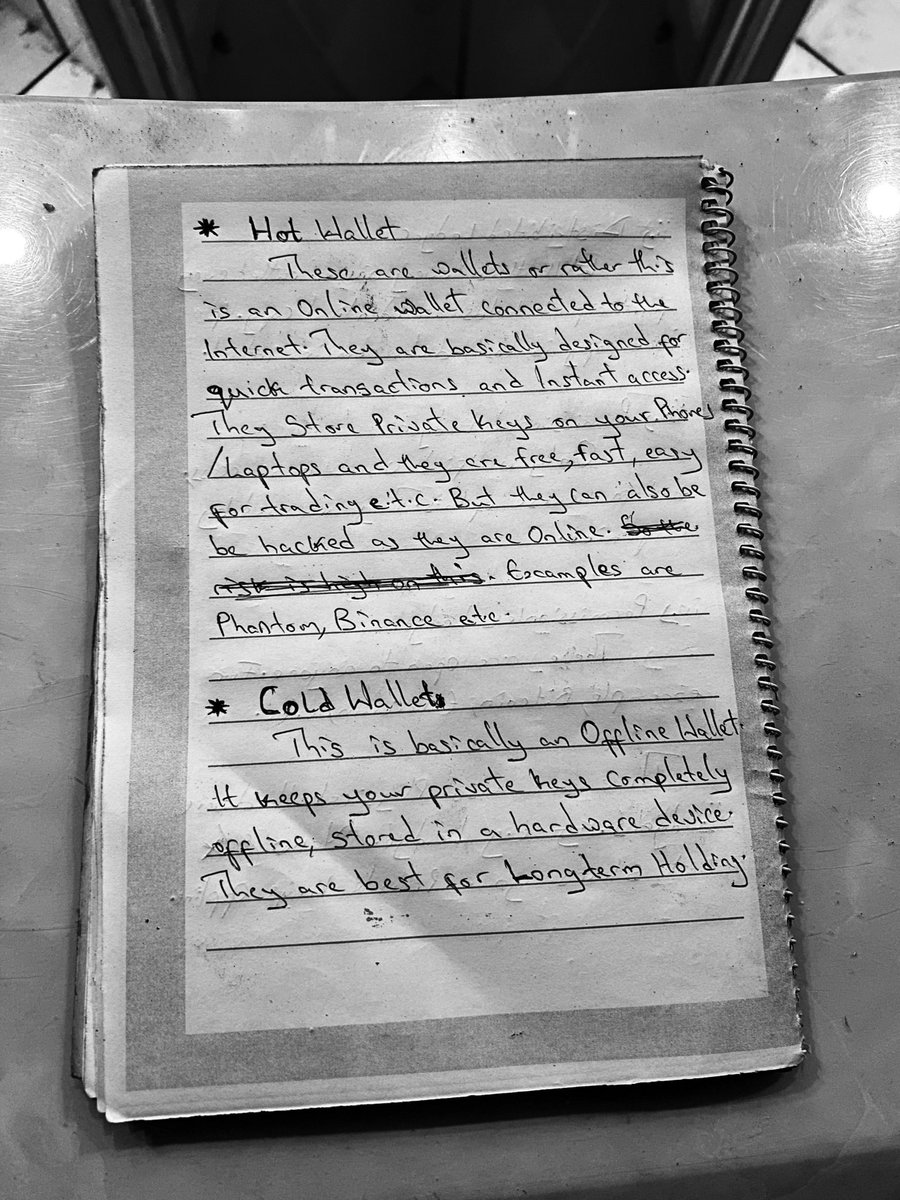 * Hot Wallet
These are wallets or rather this
is an Online wallet connected to the
Internet. They are basically designed for
quick transactions and Instant access.
They Store Private keys on your Phones
/Laptops and they are free, fast, easy
for trading e.t.c. But they can also be
be hacked as they are Online. So the
risk is high on this. Examples are
Phantom, Binance etc.
* Cold Wallets
This is basically an Offline Wallet.
It keeps your private keys Completely
offline, stored in a hardware device.
They are best for Longterm Holding.